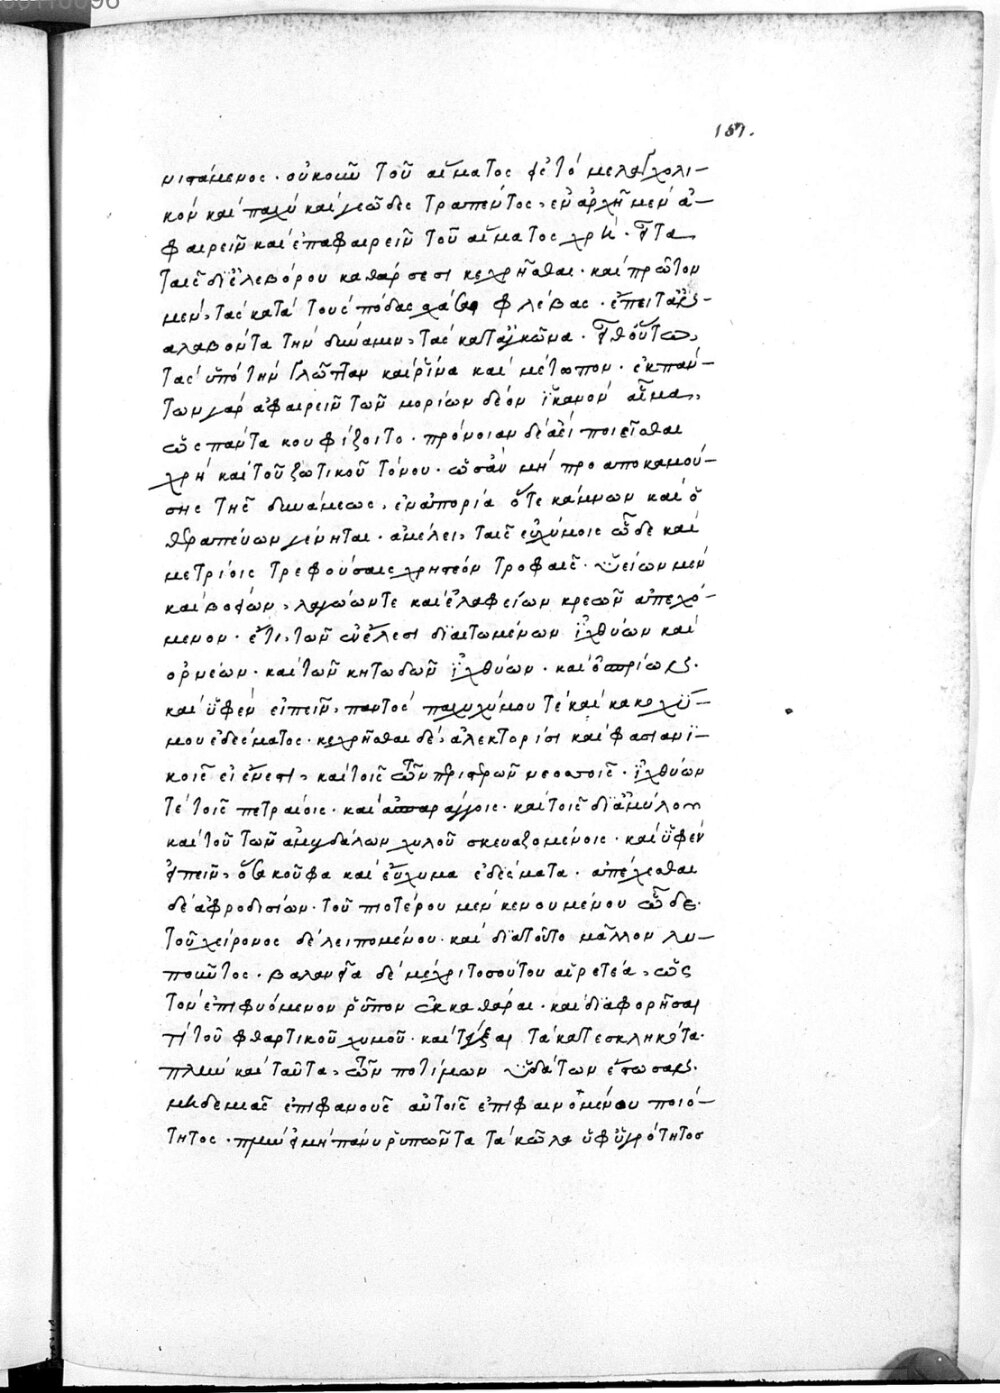 157.
νιστάμενος. οὐκοῦν τοῦ αἵματος ἐς τὸ μελαγχολι-
κὸν καὶ παχὺ καὶ γεῶδες τραπέντος, ἐν ἀρχῇ μὲν ἀ-
φαιρεῖν καὶ ἐπαφαιρεῖν τοῦ αἵματος χρή. εἶτα
ταῖς δι' ἐλεβόρου καθάρσεσι κεχρῆσθαι. καὶ πρῶτον
μέν, τὰς κατὰ τοὺς πόδας φλέβας. ἔπειτα
αλαβόντα τὴν δύναμιν, τὰς κατ' ἀγκῶνα.
τὰς ὑπὸ τὴν γλῶτταν καὶ ῥῖνα καὶ μέτωπον. ἐκ πάν-
των γὰρ ἀφαιρεῖν τῶν μορίων δέον ἱκανὸν αἷμα,
ὡς πάντα κουφίζοιτο. πρόνοιαν δὲ ἀεὶ ποιεῖσθαι
χρὴ καὶ τοῦ ζωτικοῦ τόνου. ὡς ἂν μὴ προαποκαμού-
σης τῆς δυνάμεως, ἐν ἀπορίᾳ ὅτε κάμνων καὶ ὁ
θεραπεύων γένηται. ἀμέλει, ταῖς εὐχύμοις ὧδε καὶ
μετρίοις τρεφούσαις χρηστέον τροφαῖς. ὑείων μὲν
καὶ βοείων, λαγώων τε καὶ ἐλαφείων κρεῶν ἀπεχό-
μενον. ἔτι, τῶν ἐν ἕλεσι διαιτωμένων ἰχθύων καὶ
ὀρνέων. καὶ τῶν κητωδῶν ἰχθύων. καὶ
καὶ ὑφὲν εἰπεῖν, παντὸς παχυχύμου τὲ καὶ κακοχύ-
μου ἐδέσματος. κεχρῆσθαι δέ, ἀλεκτορίσι καὶ φασιανι-
κοῖς εἰ ἔνεστι, καὶ τοῖς τῶν περιστερῶν νεοσσοῖς. ἰχθύων
τὲ τοῖς πετραίοις. καὶ ἀσπαράγγοις. καὶ τοῖς δι' ἀμύλου
καὶ τοῦ τῶν ἀμυγδάλων χυλοῦ σκευαζομένοις. καὶ ὑφὲν
εἰπεῖν, ὅσα κοῦφα καὶ εὔχυμα ἐδέσματα. ἀπέχεσθαι
δὲ ἀφροδισίων. τοῦ πιοτέρου μὲν κενουμένου ὧδε.
τοῦ χείρονος δὲ λειπομένου. καὶ διατοῦτο μᾶλλον λυ-
ποῦντος. βαλανεῖα δὲ μέχρι τοσούτου αἱρετέα, ὡς
τὸν ἐπιφυόμενον ῥύπον ἐκκαθάραι. καὶ διαφορῆσαί
τι τοῦ φθαρτικοῦ χυμοῦ. καὶ τῆξαι τὰ κατεσκληκότα.
πλὴν καὶ ταῦτα, τῶν ποτίμων ὑδάτων ἔστωσαν.
μηδεμιᾶς ἐπιφανοῦς αὐτοῖς ἐπιφαινομένου ποιό-
τητος. πλὴν εἰ μὴ πάνυ ῥυπῶντα τὰ κῶλα ὑφ' ὑγρότητος